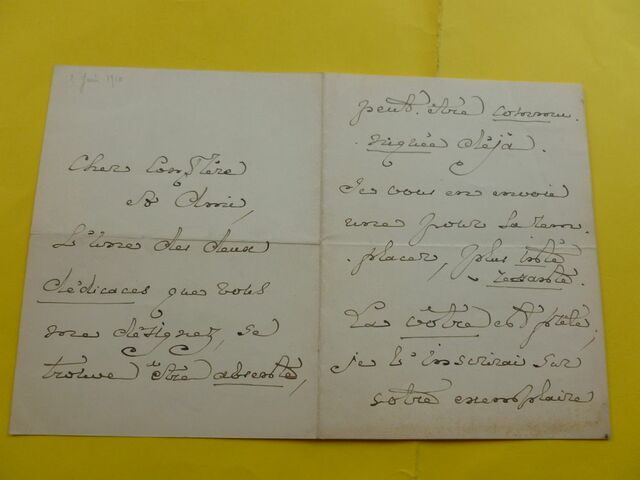 2 Juin 1910
Cher Confrère
et Ami,
L'une des deux
dédicaces que vous
me désignez, se
trouve être absente,
peut-être commu-
-niquée déjà.
Je vous en envoie
une pour la rem-
-placer, plus inté-
-ressante.
La vôtre est prête,
je l'inscrirai sur
votre exemplaire